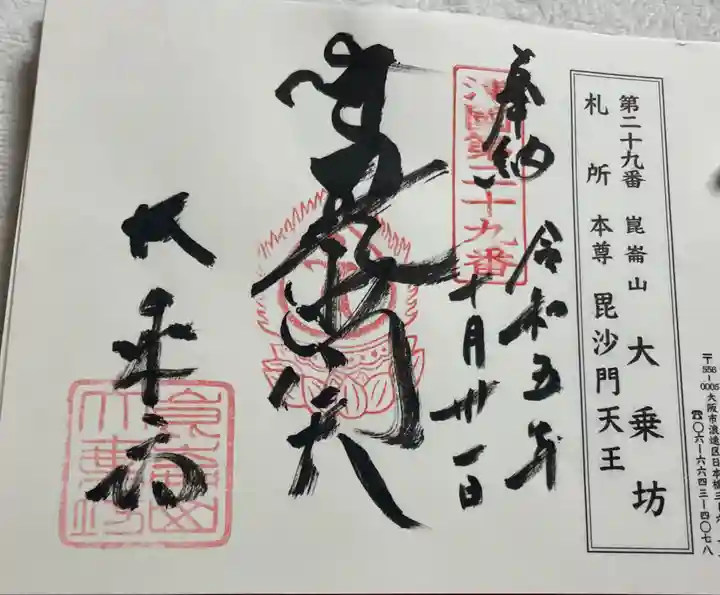 第二十九番 崑崙山 大乗坊
札所本尊 毘沙門天王
〒556-0005 大阪市浪速区日本橋三
☎〇六-六六四三-四〇七八
奉納 令和五年
十月卅一日
第二十九番
毘沙門天
大乗坊